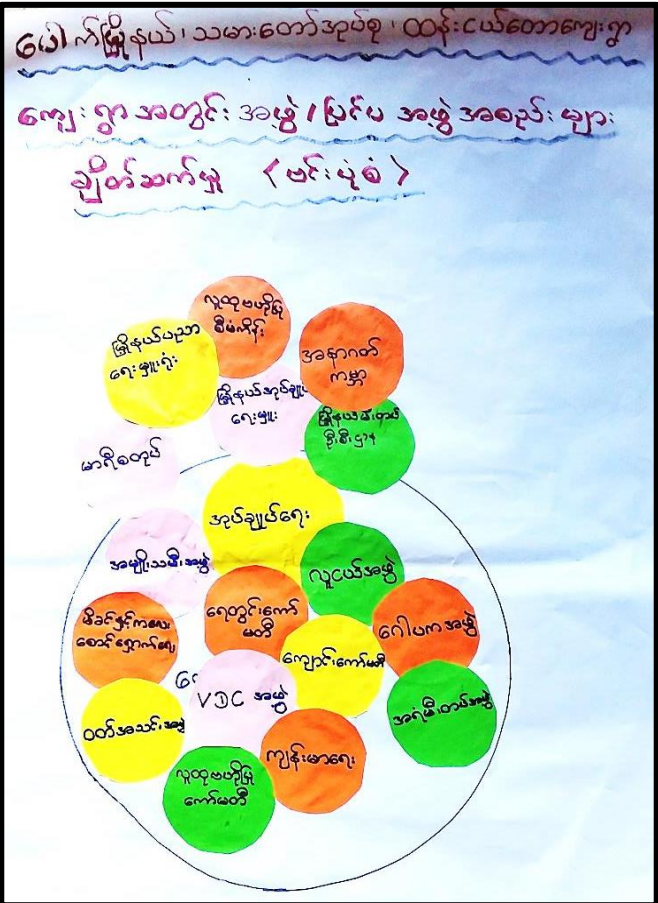 ပေါက်မြို့နယ်၊ သမားတော်အုပ်စု၊ ထန်းငယ်တောကျေးရွာ
ကျေးရွာအတွင်းအဖွဲ့/ပြင်ပ အဖွဲ့အစည်းများ
ချိတ်ဆက်မှု <ဗင်းပုံစံ>
လူထုဗဟိုပြု
စီမံကိန်း
မြို့နယ်ပညာ
ရေးမှူးရုံး
အနာဂတ်
ကမ္ဘာ
မြို့နယ်အုပ်ချုပ်
ရေးမှူး
မြို့နယ်မီးသတ်
ဦးစီးဌာန
မာရီစတုပ်
အုပ်ချုပ်ရေး
အမျိုးသမီးအဖွဲ့
လူငယ်အဖွဲ့
မိခင်နှင့်ကလေး
စောင့်ရှောက်ရေး
ရေတွင်းကော်
မတီ
ဂေါပကအဖွဲ့
ကျောင်းကော်မတီ
VDC အဖွဲ့
ဝတ်အသင်းအဖွဲ့
အရံမီးသတ်အဖွဲ့
ကျန်းမာရေး
လူထုဗဟိုပြု
ကော်မတီ